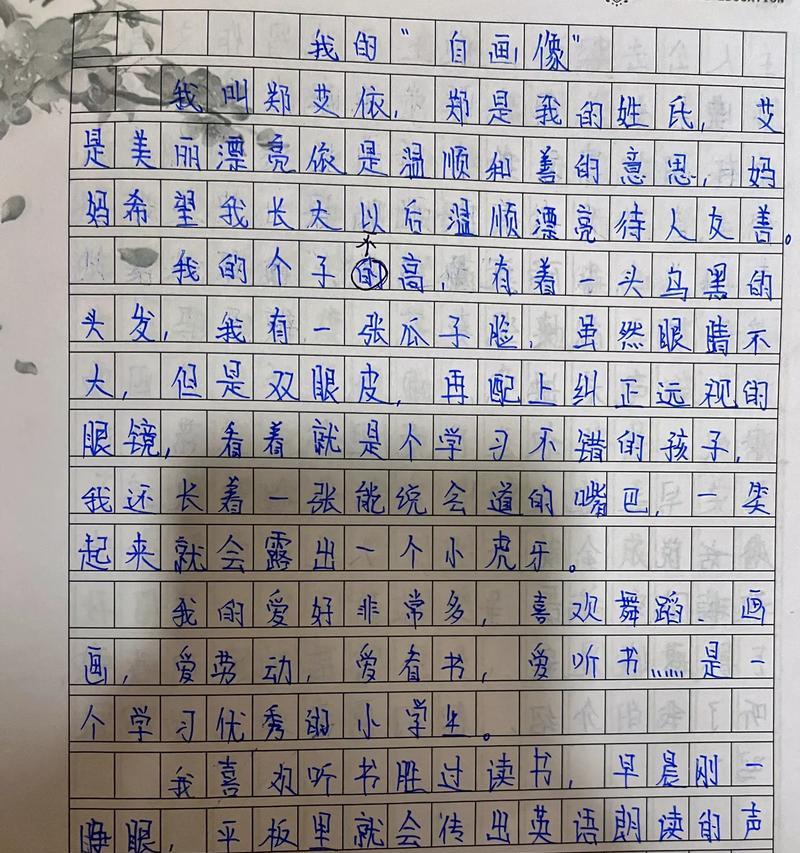 我的“自画像”
我叫郑艾依，郑是我的姓氏，艾
是美丽漂亮依是温顺和善的意思，妈
妈希望我长大以后温顺漂亮待人友善。
不
我的个子的高，有着一头乌黑的
头发，我有一张瓜子脸，虽然眼睛不
大，但是双眼皮，再配上纠正远视的
眼镜，看着就是个学习不错的孩子，
我还长着一张能说会道的嘴巴，一笑
起来就会露出一个小虎牙。
我的爱好非常多，喜欢舞蹈、画
画，爱劳动，爱看书，爱听书……是一
个学习优秀的小学生。
我喜欢听书胜过读书，早晨刚一
睁眼，平板里就会传出英语朗读的声